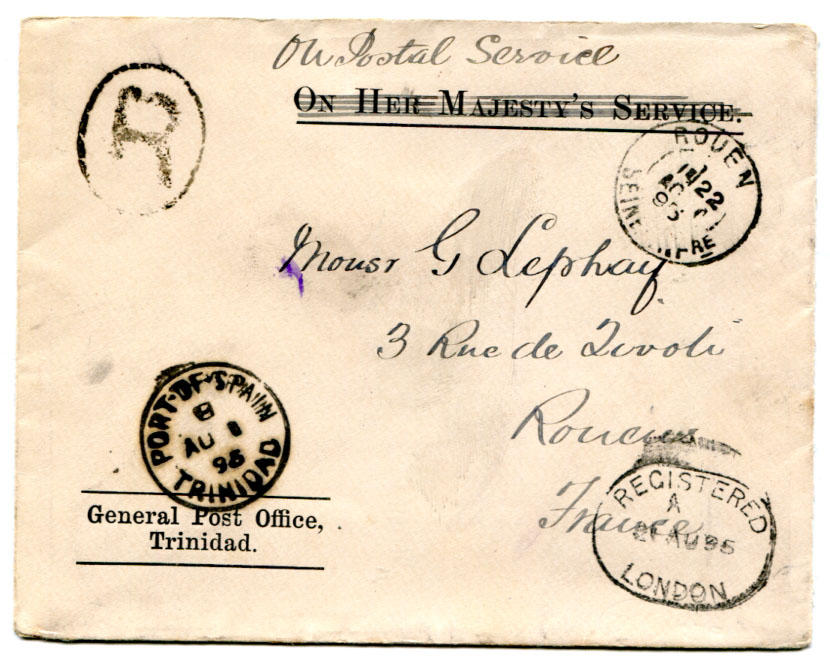 On Postal Service
ON HER MAJESTY'S SERVICE.
R
ROUEN
22
95
SEINE
RE
Monsr G Lephay
3 Rue de Tivoli
PORT-OF-SPAIN
B
AU 8
95
TRINIDAD
General Post Office,
Trinidad.
France
REGISTERED
A
21 AU 95
LONDON